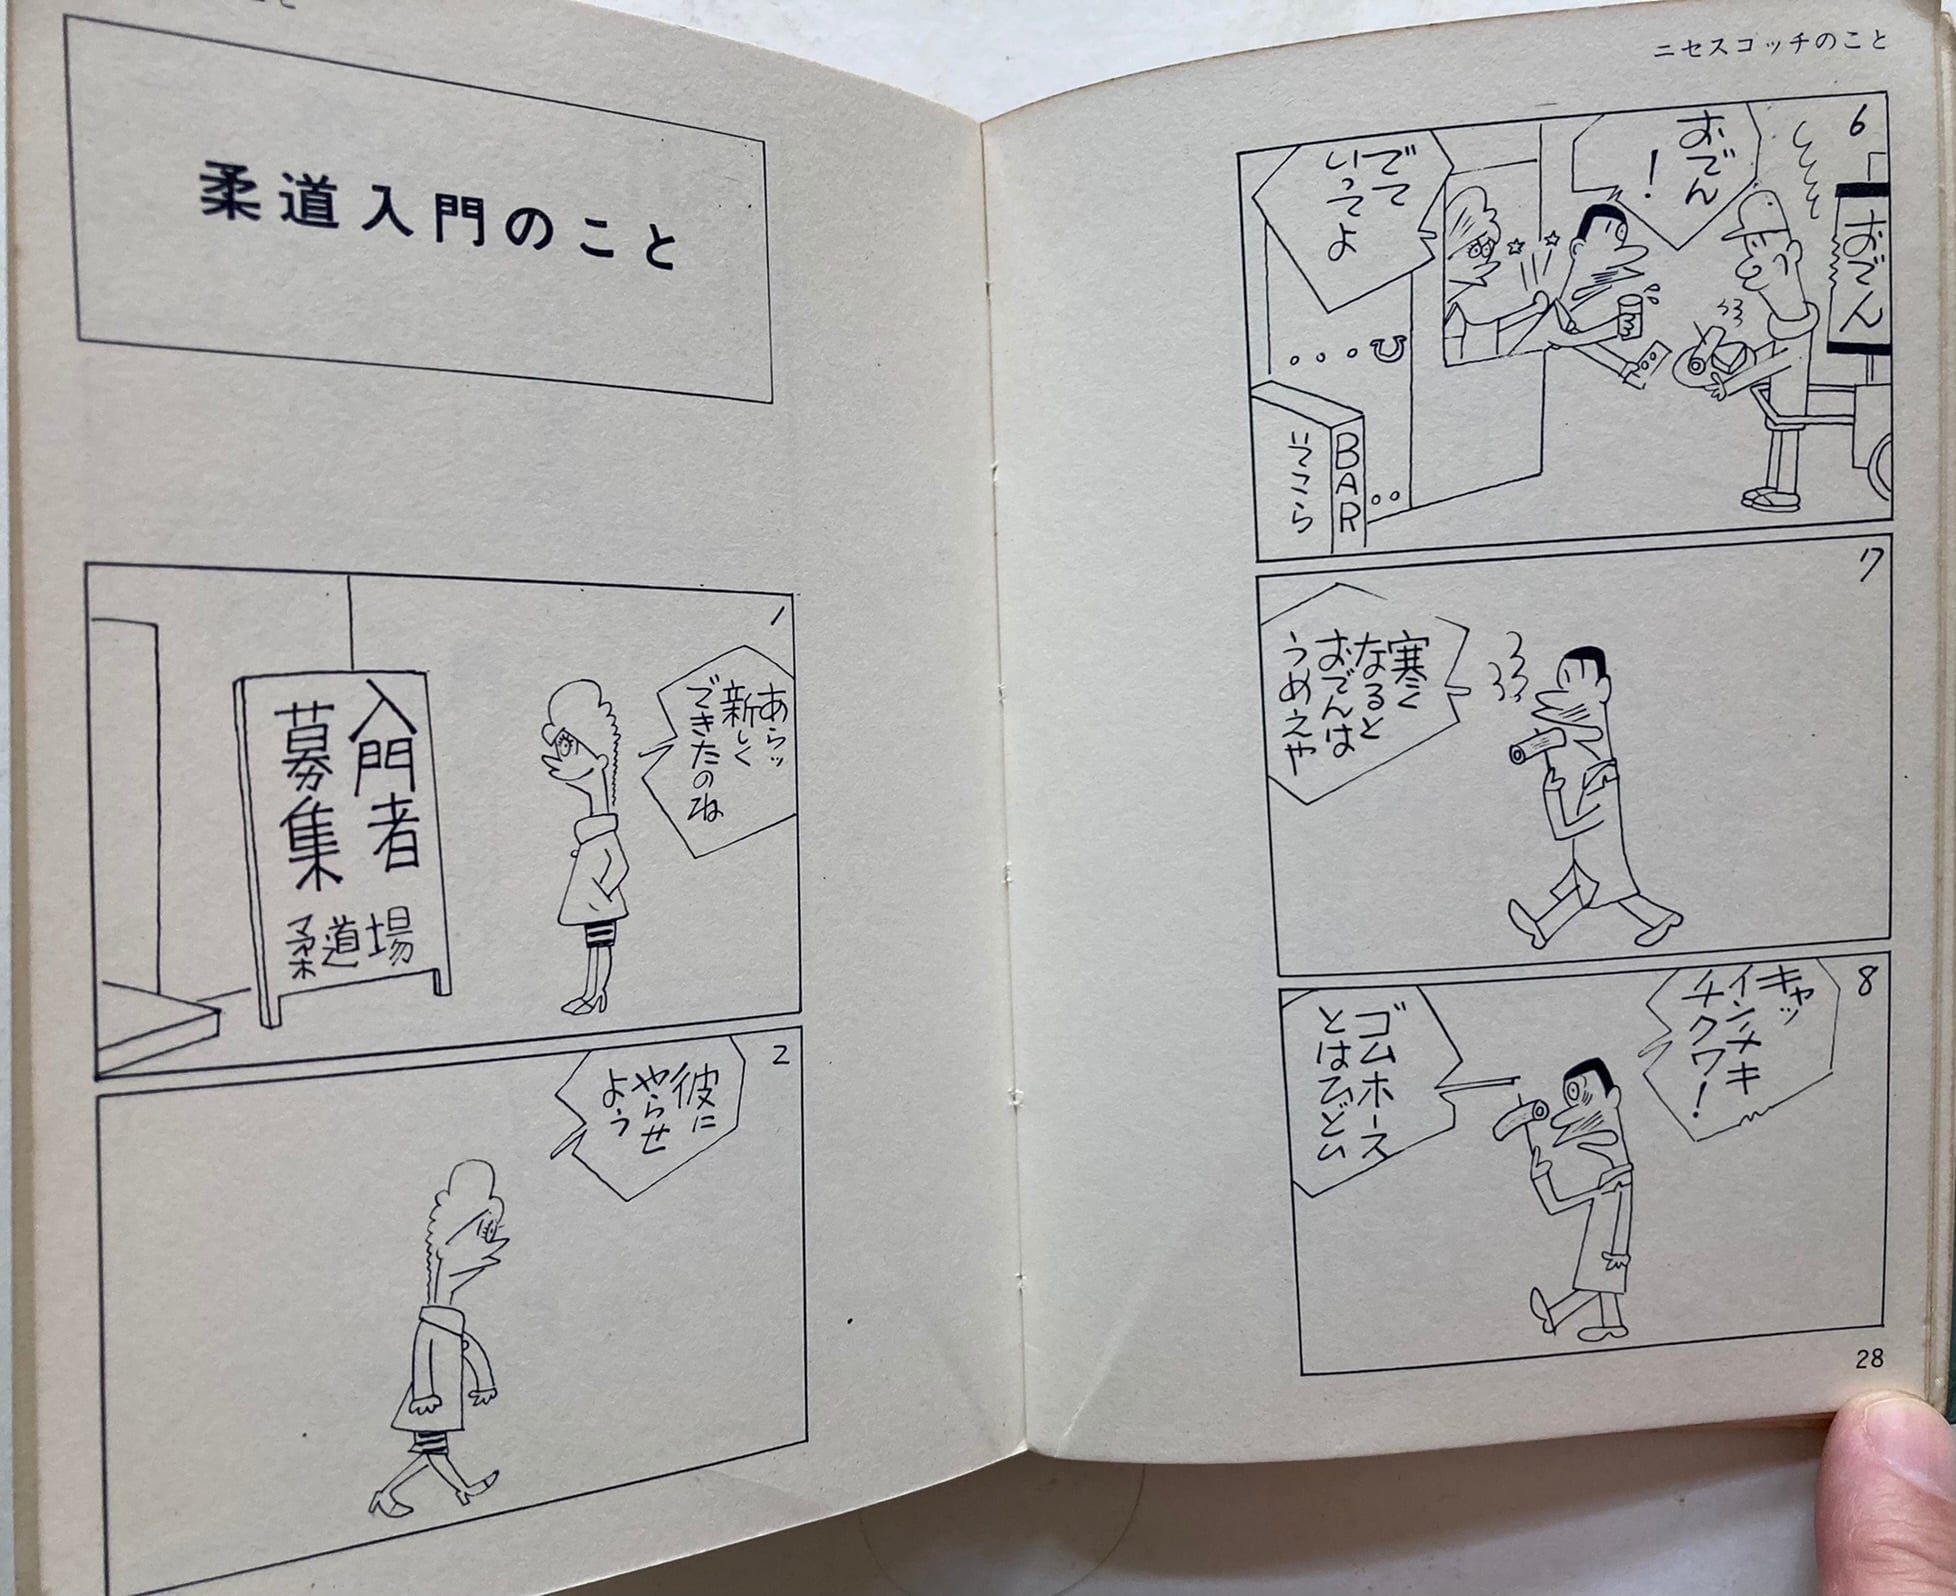 ニセスコッチのこと
6
おでん
!
おでん
でて
いってよ
BAR
いこら
7
寒く
なると
おでんは
うめえや
8
キャッ
インチキ
チクワ!
ゴムホース
とはひどい
28
柔道入門のこと
1
あらッ
新しく
できたのね
入門者
募集
柔道場
2
彼に
やらせ
よう